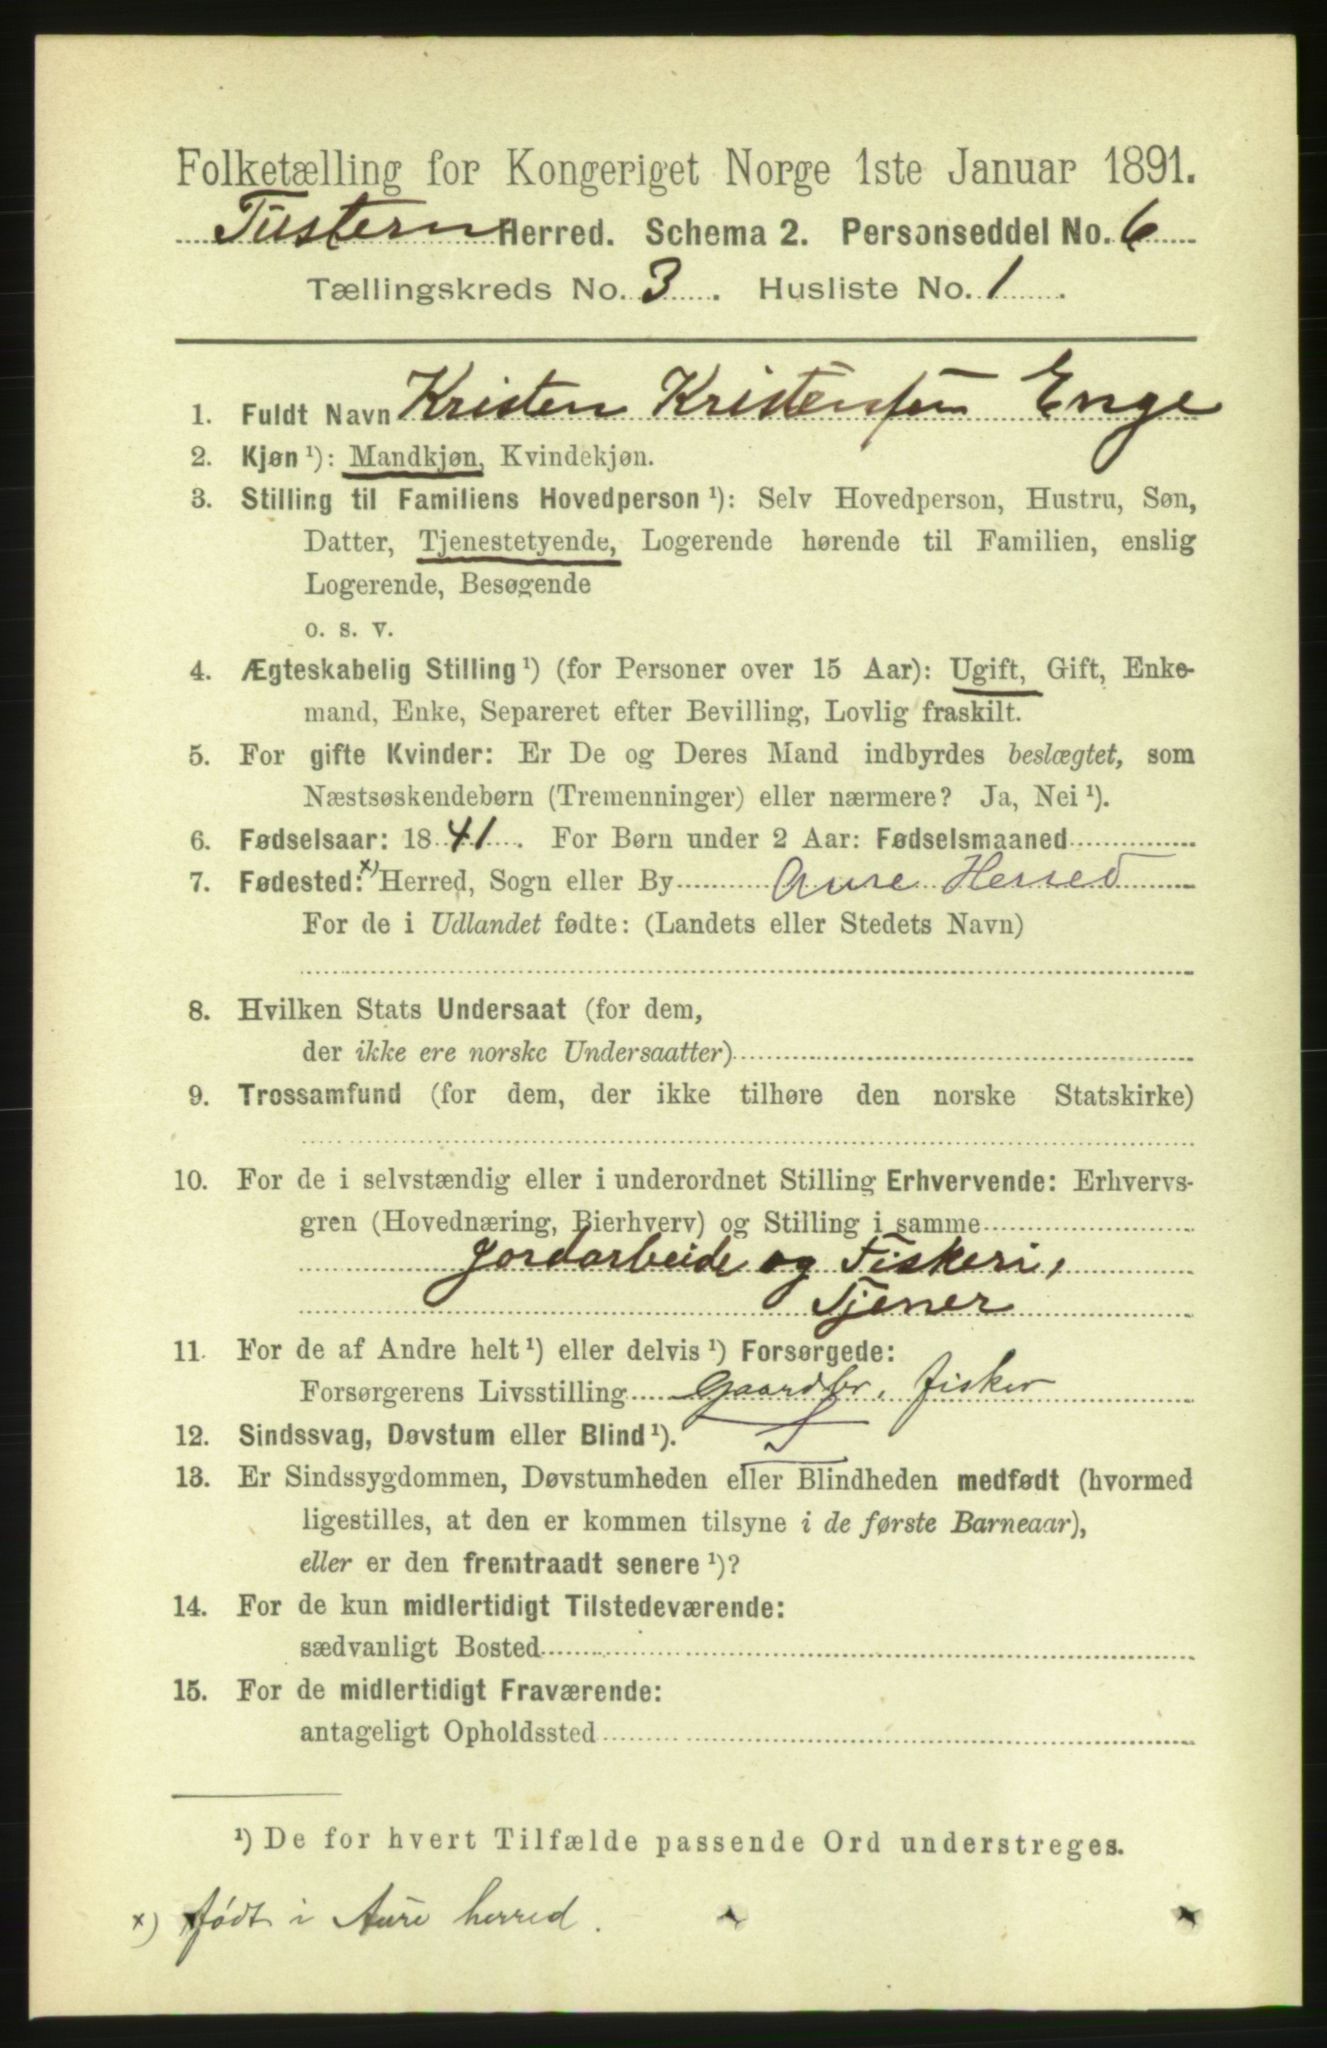 Folketælling for Kongeriget Norge 1ste Januar 1891.
Tustern Herred. Schema 2. Personseddel No. 6
Tællingskreds No. 3. Husliste No. 1.
1. Fuldt Navn Kristen Kristensen Enge
2. Kjøn ¹): Mandkjøn, Kvindekjøn.
3. Stilling til Familiens Hovedperson ¹): Selv Hovedperson, Hustru, Søn,
Datter, Tjenestetyende, Logerende hørende til Familien, enslig
Logerende, Besøgende
o. s. v.
4. Ægteskabelig Stilling ¹) (for Personer over 15 Aar): Ugift, Gift, Enke-
mand, Enke, Separeret efter Bevilling, Lovlig fraskilt.
5. For gifte Kvinder: Er De og Deres Mand indbyrdes beslægtet, som
Næstsøskendebørn (Tremenninger) eller nærmere? Ja, Nei ¹).
6. Fødselsaar: 1841. For Børn under 2 Aar: Fødselsmaaned
7. Fødested: x) Herred, Sogn eller By Aure Herred
For de i Udlandet fødte: (Landets eller Stedets Navn)
8. Hvilken Stats Undersaat (for dem,
der ikke ere norske Undersaatter)
9. Trossamfund (for dem, der ikke tilhøre den norske Statskirke)
10. For de i selvstændig eller i underordnet Stilling Erhvervende: Erhvervs-
gren (Hovednæring, Bierhverv) og Stilling i samme
Jordarbeide og Fiskeri,
Tjener
11. For de af Andre helt ¹) eller delvis ¹) Forsørgede:
Forsørgerens Livsstilling Gaardbr. fisker
12. Sindssvag, Døvstum eller Blind ¹).
13. Er Sindssygdommen, Døvstumheden eller Blindheden medfødt (hvormed
ligestilles, at den er kommen tilsyne i de første Barneaar),
eller er den fremtraadt senere ¹)?
14. For de kun midlertidigt Tilstedeværende:
sædvanligt Bosted
15. For de midlertidigt Fraværende:
antageligt Opholdssted
¹) De for hvert Tilfælde passende Ord understreges.
x) født i Aure herred.